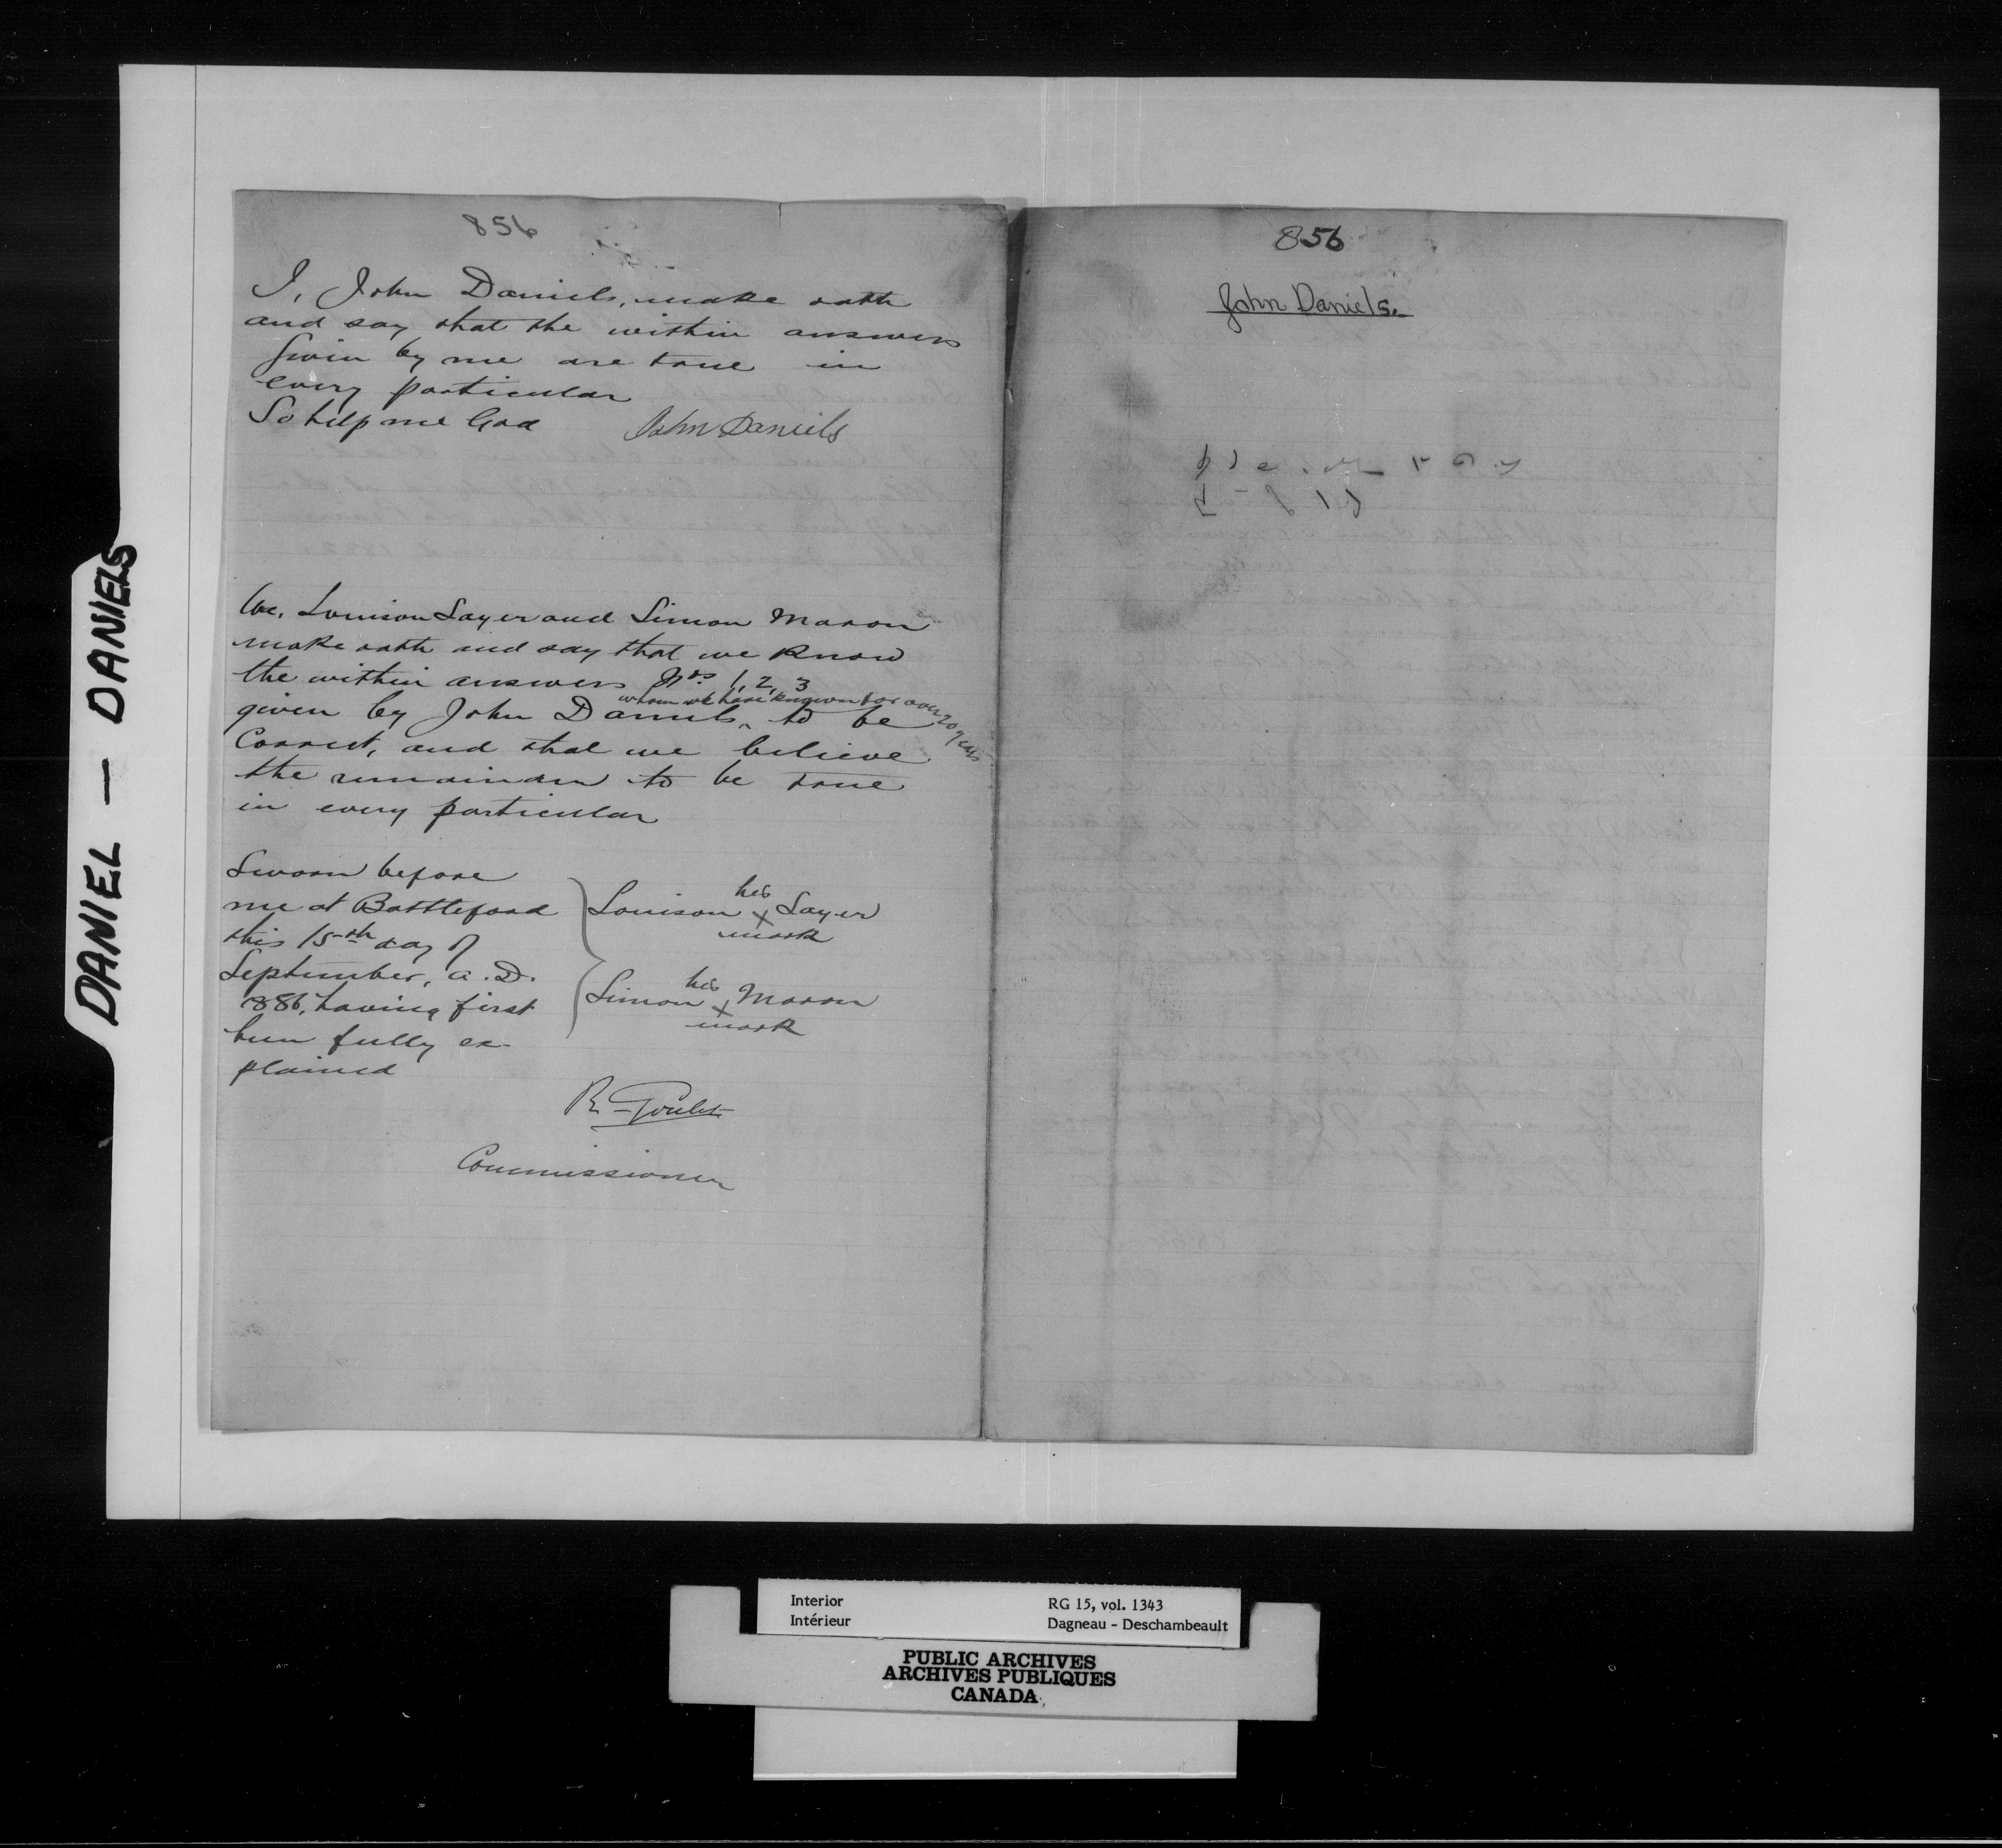 DANIEL — DANIELS
856
I, John Daniels, make oath
and say that the within answers
given by me are true in
every particular
So help me God John Daniels
We, Louison Sayer and Simon Maron
make oath and say that we know
the within answers Nos 1, 2, 3
whom we have known for over 20 years
given by John Daniels ‸ to be
correct, and that we believe
the remainder to be true
in every particular
Sworn before
me at Battleford
this 15th day of
September, A.D.
1886, having first
been fully ex-
plained
his
Louison x Sayer
mark
his
Simon x Maron
mark
R. Goulet
Commissioner
856
John Daniels.
Interior
Intérieur
RG 15, vol. 1343
Dagneau - Deschambeault
PUBLIC ARCHIVES
ARCHIVES PUBLIQUES
CANADA